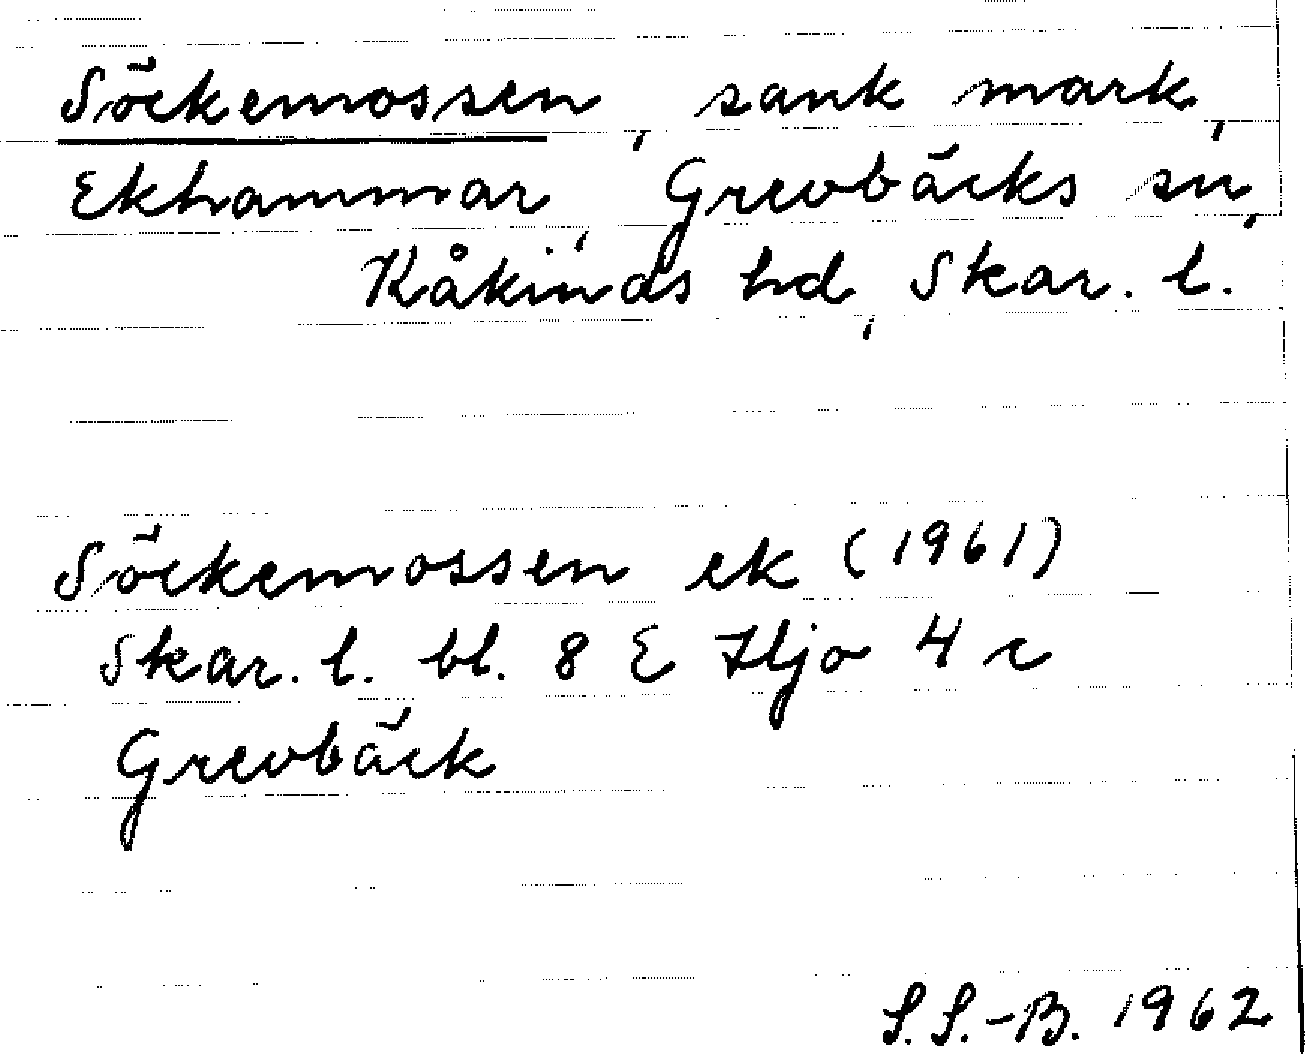 Söckemossen, sank mark,
Ekhammar, Grevbäcks sn,
Kåkinds hd, Skar. l.
Söckemossen ek (1961)
Skar. l. bl. 8 E Hjo 4 c
Grevbäck
S.S.-B. 1962